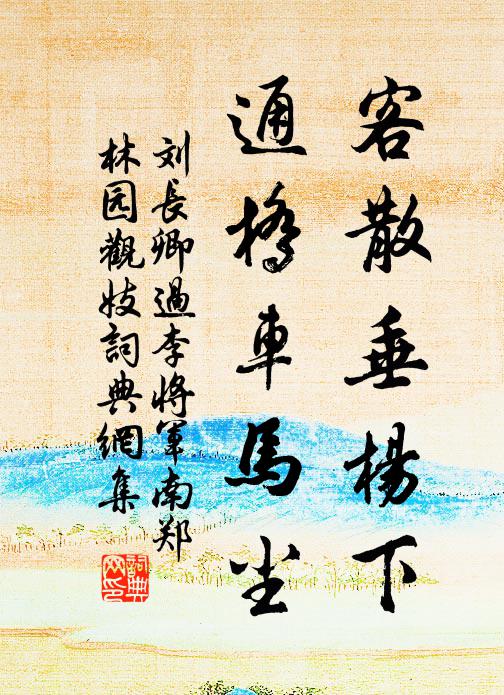 客散垂楊下
通橋車馬尘
刘長卿過李将軍南郑
林园觀妓詞典網集
詞典
网印